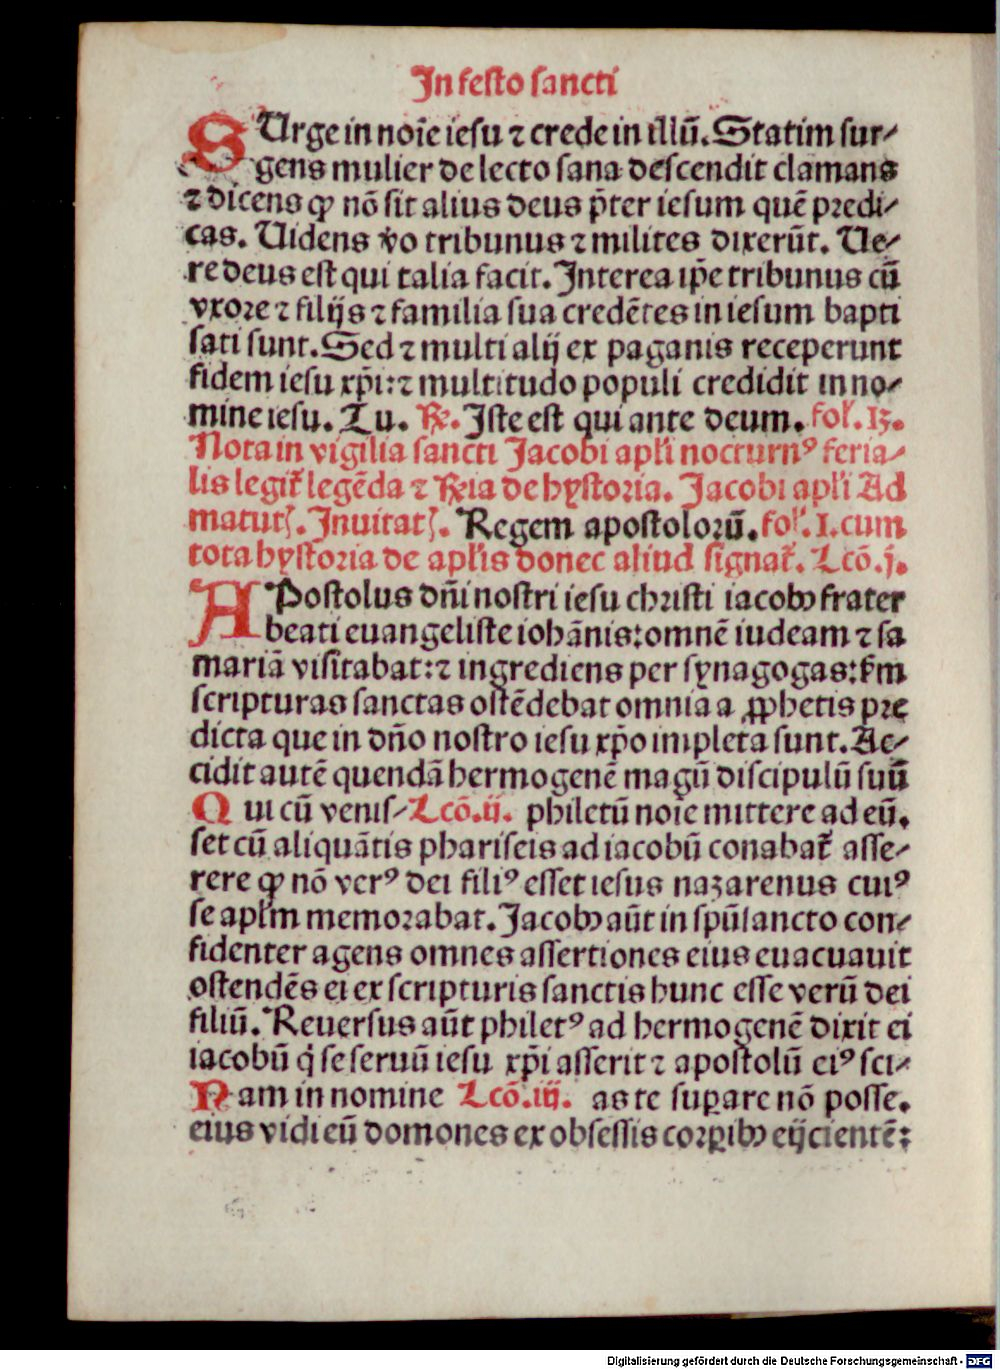 In festo sancti
SUrge in noīe iesu ⁊ crede in illū. Statim sur⸗
gens mulier de lecto sana descendit clamans
⁊ dicens ꝙ nō sit alius deus p̄ter iesum quē predi⸗
cas. Uidens v̄o tribunus ⁊ milites dixerūt. Ue⸗
re deus est qui talia facit. Interea ip̄e tribunus cū
vxore ⁊ filijs ⁊ familia sua credētes in iesum bapti
sati sunt. Sed ⁊ multi alij ex paganis receperunt
fidem iesu xp̄i: ⁊ multitudo populi credidit in no⸗
mine iesu. Tu. ℟. Iste est qui ante deum. fol'. 13.
Nota in vigilia sancti Jacobi apl'i nocturnꝰ feria⸗
lis legit᷑ legēda ⁊ ℟ia de hystoria. Jacobi apl'i Ad
matutꝭ. Inuitatꝭ. Regem apostolorū. fol'. 1. cum
tota hystoria de apl'is donec aliud signat᷑. Lcō. j.
APostolus dn̄i nostri iesu christi iacobꝰ frater
beati euangeliste iohānis: omnē iudeam ⁊ sa
mariā visitabat: ⁊ ingrediens per synagogas: s̄m
scripturas sanctas ostēdebat omnia a ꝓphetis pre
dicta que in dn̄o nostro iesu xp̄o impleta sunt. Ac⸗
cidit autē quendā hermogenē magū discipulū suū
Qui cū venis⸗ Lcō. ij. philetū noīe mittere ad eū.
set cū aliquātis phariseis ad iacobū conabat᷑ asse⸗
rere ꝙ nō verꝰ dei filiꝰ esset iesus nazarenus cuiꝰ
se apl'm memorabat. Jacobꝰ aūt in spū sancto con⸗
fidenter agens omnes assertiones eius euacuauit
ostendēs ei ex scripturis sanctis hunc esse verū dei
filiū. Reuersus aūt philetꝰ ad hermogenē dixit ei
iacobū q̇ se seruū iesu xp̄i asserit ⁊ apostolū eiꝰ sci⸗
Nam in nomine Lcō. iij. as te suꝑare nō posse.
eius vidi eū domones ex obsessis corꝑibꝰ eijcientē:
Digitalisierung gefördert durch die Deutsche Forschungsgemeinschaft - DFG